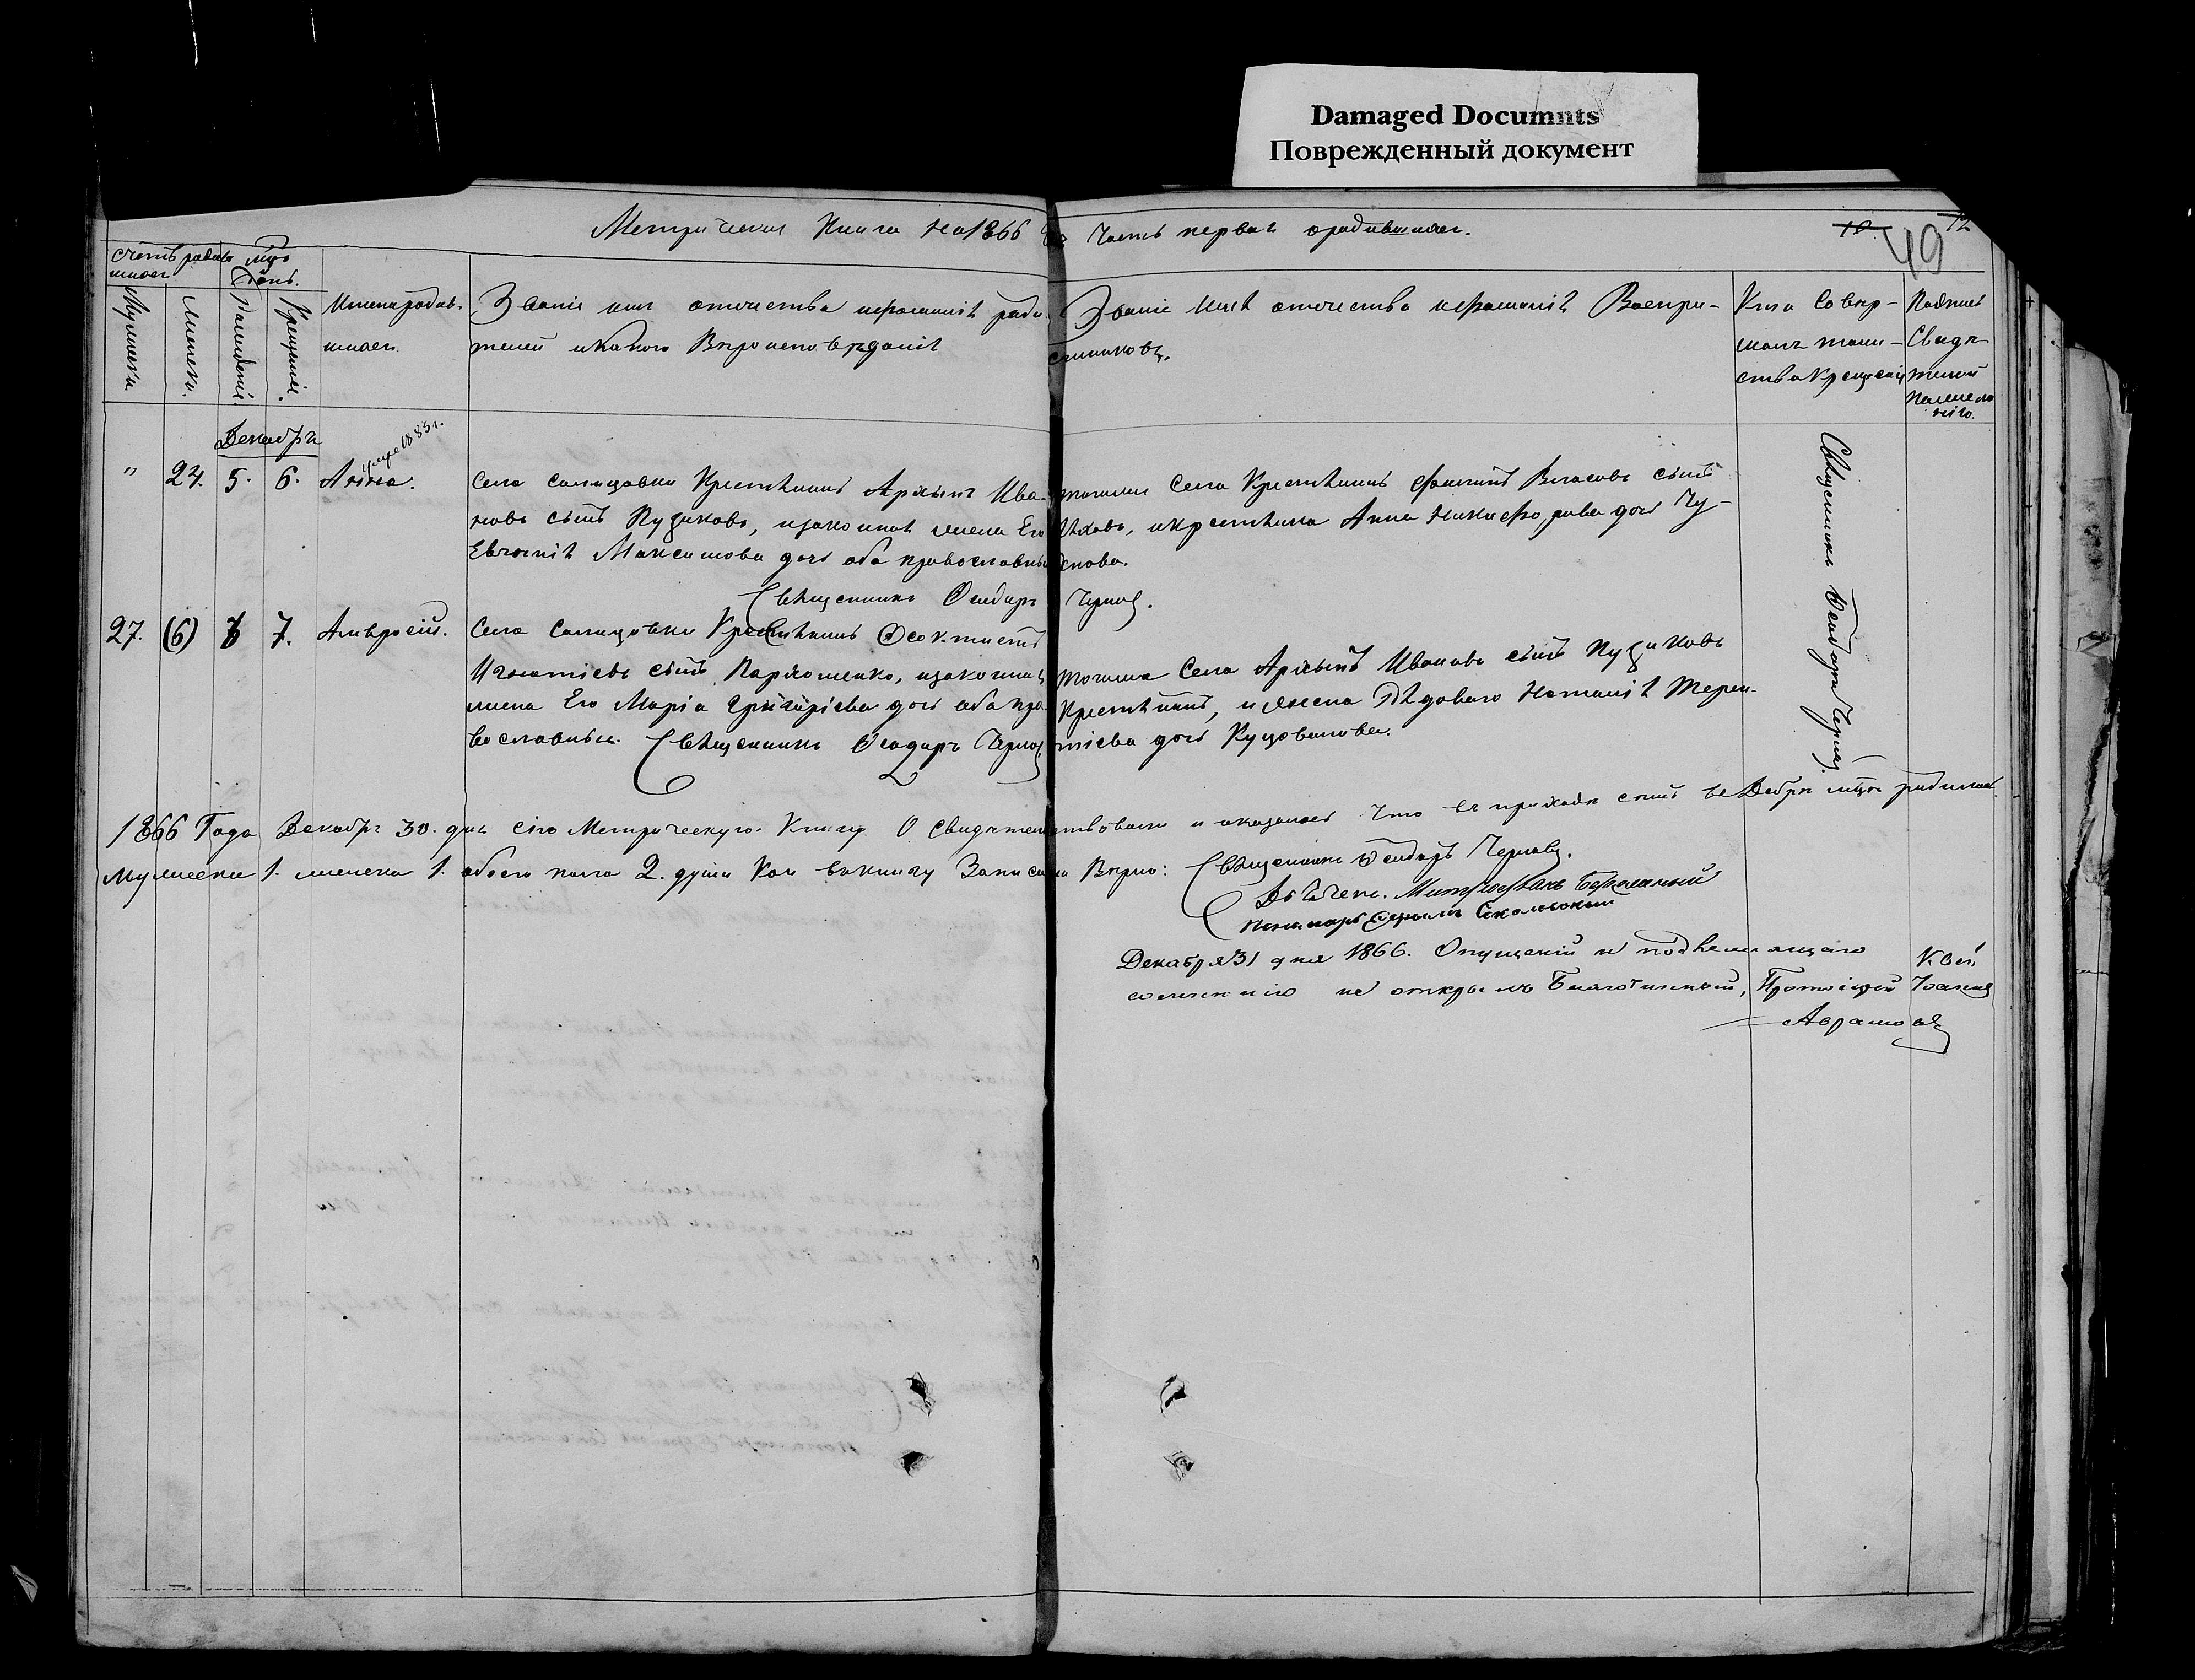 Damaged Documnts
Поврежденный документ
Метрическая Книга на 1866 Часть первая ородившихся.
10. 12
49
Счетъ родив-
шихся
Мца
День.
Мужеска.
Женска.
Рожденія.
Крещенія.
Имена родив-
шихся.
Званіе имя отчество ифамилія роди-
телей икакого Вѣроисповѣданія
Званіе имя отчество ифамилія Воспри-
емниковъ.
Кто совер-
шалъ таин-
ство Крещенія
Подпись
Свидѣ-
телей
по желе
нію.
Декабрь
умре 1883 г.
" 24. 5. 6. Анна.
Села Крестьянинъ Архипъ Ива-
новъ сынъ Пузиковъ, изаконная жена Его
Евгенія Максимова дочь оба православны
Священникъ Феодоръ Чернов.
тогожъ Села Крестьянинъ Филипъ Власовъ сынъ
икрестьянка Анна Никифорова дочь Чу-
Священникъ Феодоръ Чернов.
27. (6) 6 7. Амвросій.
Села Крестьянинъ Феоктистъ
Игнатіевъ сынъ Пархоменко, изаконная
жена Его Марія Григоріева дочь оба пра-
вославные. Священникъ Феодоръ Чернов.
тогожъ Села Архипъ Ивановъ сынъ Пузиковъ
Крестьянинъ, и жена Наталія Терен-
тіева дочь
1866 Года Декабря 30. дня сію Метрическую Книгу Освидѣтельствовали и оказалось что въ приходѣ семъ въ Декбрѣ мцѣ родилось
мужеска 1. женска 1. обоего пола 2. души Кои вкнигу Записаны Вѣрно: Священникъ Феодоръ Чернов.
Митрофанъ
Пономарь
Декабря 31 дня 1866. Опущеній и подлежащаго
сомненію не открылъ Благочинный, Протоіерей Іоаннъ
Аврамовъ